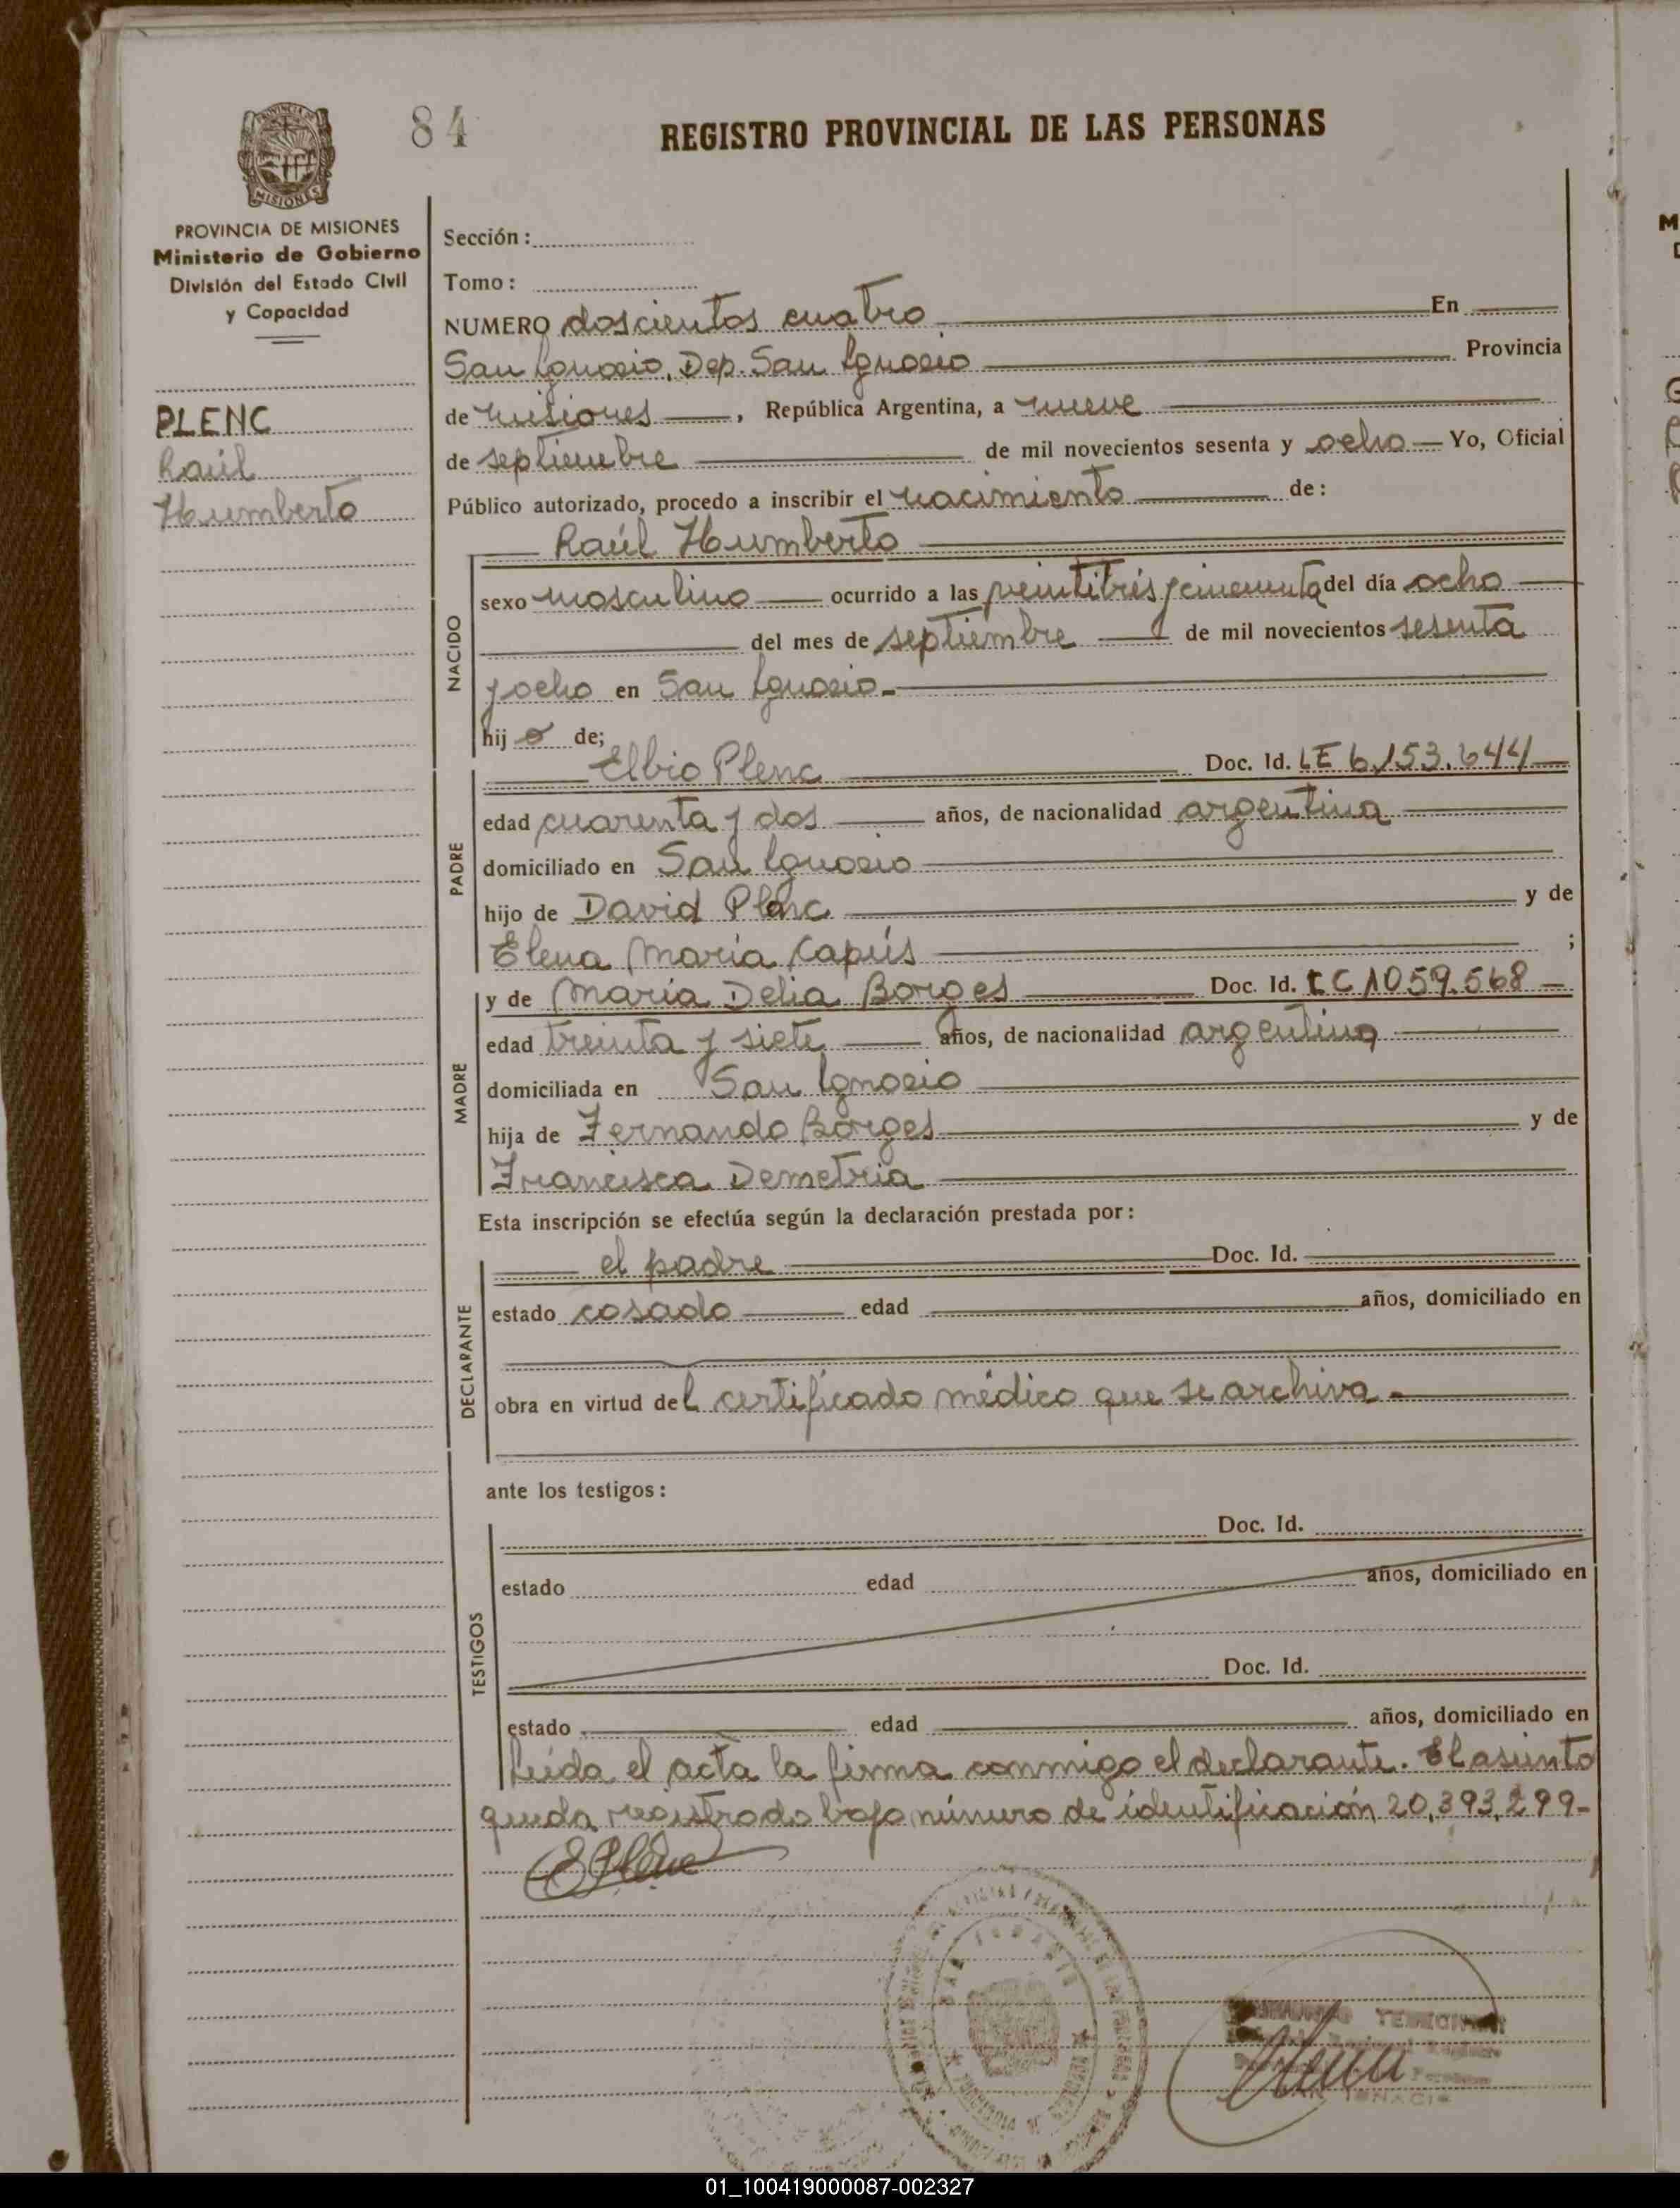 84
REGISTRO PROVINCIAL DE LAS PERSONAS
PROVINCIA DE MISIONES
Ministerio de Gobierno
División del Estado Civil
y Capacidad
PLENC
Raúl
Humberto
Sección:
Tomo:
NUMERO doscientos cuatro En
San Ignacio, Dep. San Ignacio Provincia
de Misiones, República Argentina, a nueve
de septiembre de mil novecientos sesenta y ocho Yo, Oficial
Público autorizado, procedo a inscribir el nacimiento de:
Raúl Humberto
NACIDO
sexo masculino ocurrido a las veintitrés y cincuenta del día ocho
del mes de septiembre de mil novecientos sesenta
y ocho en San Ignacio.-
hijo de;
PADRE
Elbio Plenc Doc. Id. LE 6.153.644
edad cuarenta y dos años, de nacionalidad argentina
domiciliado en San Ignacio
hijo de David Plenc y de
Elena María Capiís ;
MADRE
y de María Delia Borges Doc. Id. LC 1059.568
edad treinta y siete años, de nacionalidad argentina
domiciliada en San Ignacio
hija de Fernando Borges y de
Francisca Demetria
Esta inscripción se efectúa según la declaración prestada por:
DECLARANTE
el padre Doc. Id.
estado casado edad años, domiciliado en
obra en virtud del certificado médico que se archiva.-
ante los testigos:
TESTIGOS
Doc. Id.
estado edad años, domiciliado en
Doc. Id.
estado edad años, domiciliado en
Leída el acta la firma conmigo el declarante. El asiento
queda registrado bajo número de identificación 20.393.299-
EPlenc
SAN IGNACIO
01_100419000087-002327